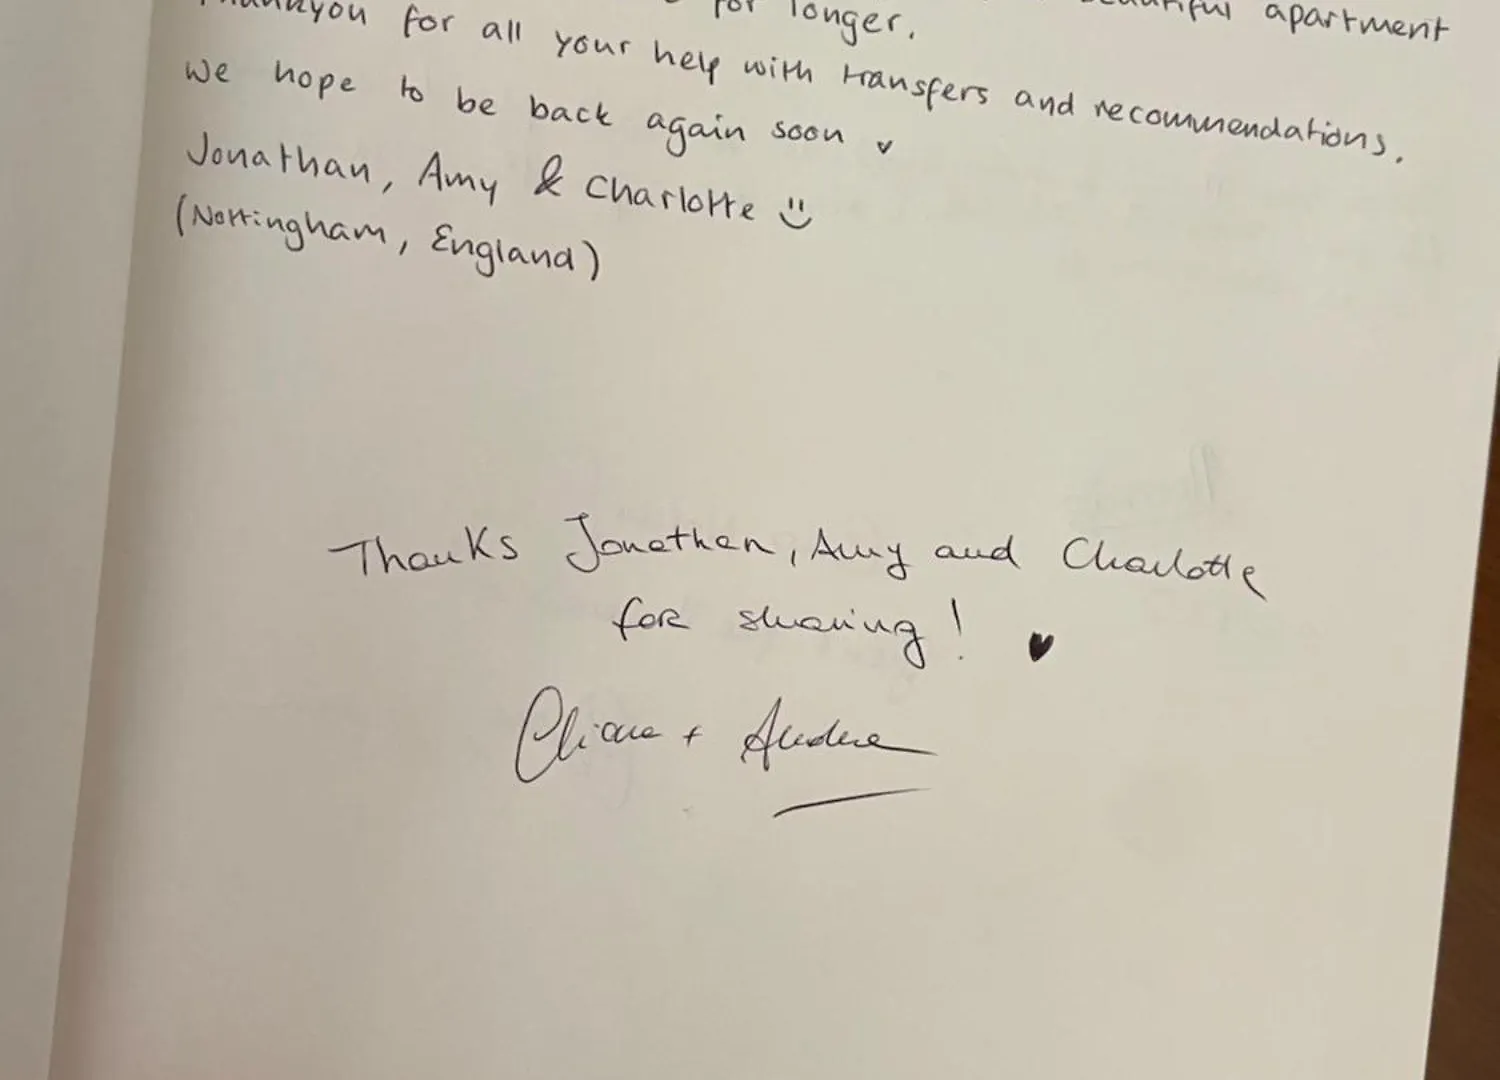 for longer.
beautiful apartment
Thankyou for all your help with transfers and recommendations.
We hope to be back again soon
Jonathan, Amy & Charlotte
(Nottingham, England)
Thanks Jonathan, Amy and Charlotte
for sharing!
+